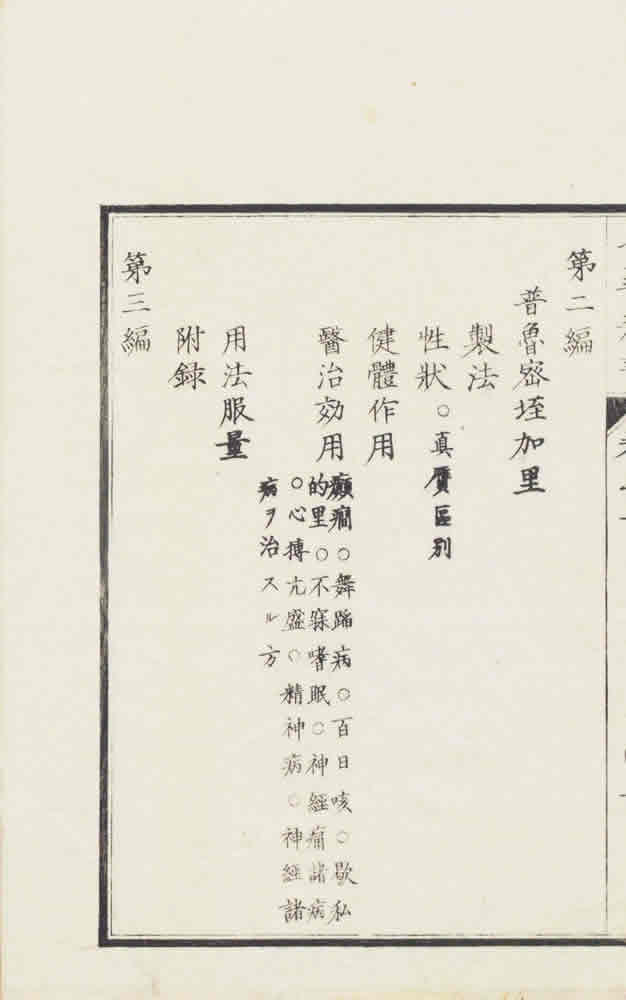 第二編
普魯密垤加里
製法
性狀○真贋區別
健體作用
醫治効用
癲癇○舞蹈病○百日咳○歇私
的里○不寐嗜眠○神經痛諸病
○心搏亢盛○精神病○神經諸
病ヲ治スル方
用法服量
附錄
第三編